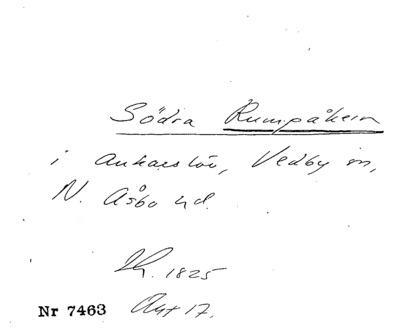 Södra Rumpåkern
i Ankarslöv, Vedby sn,
N. Åsbo hd.
1825
Nr 7463 Akt 17.